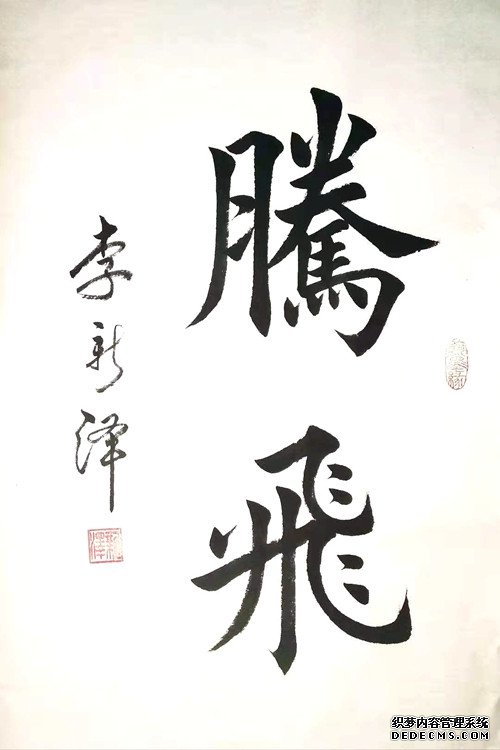 騰飛
李新泽
织梦内容管理系统
DEDECMS.COM